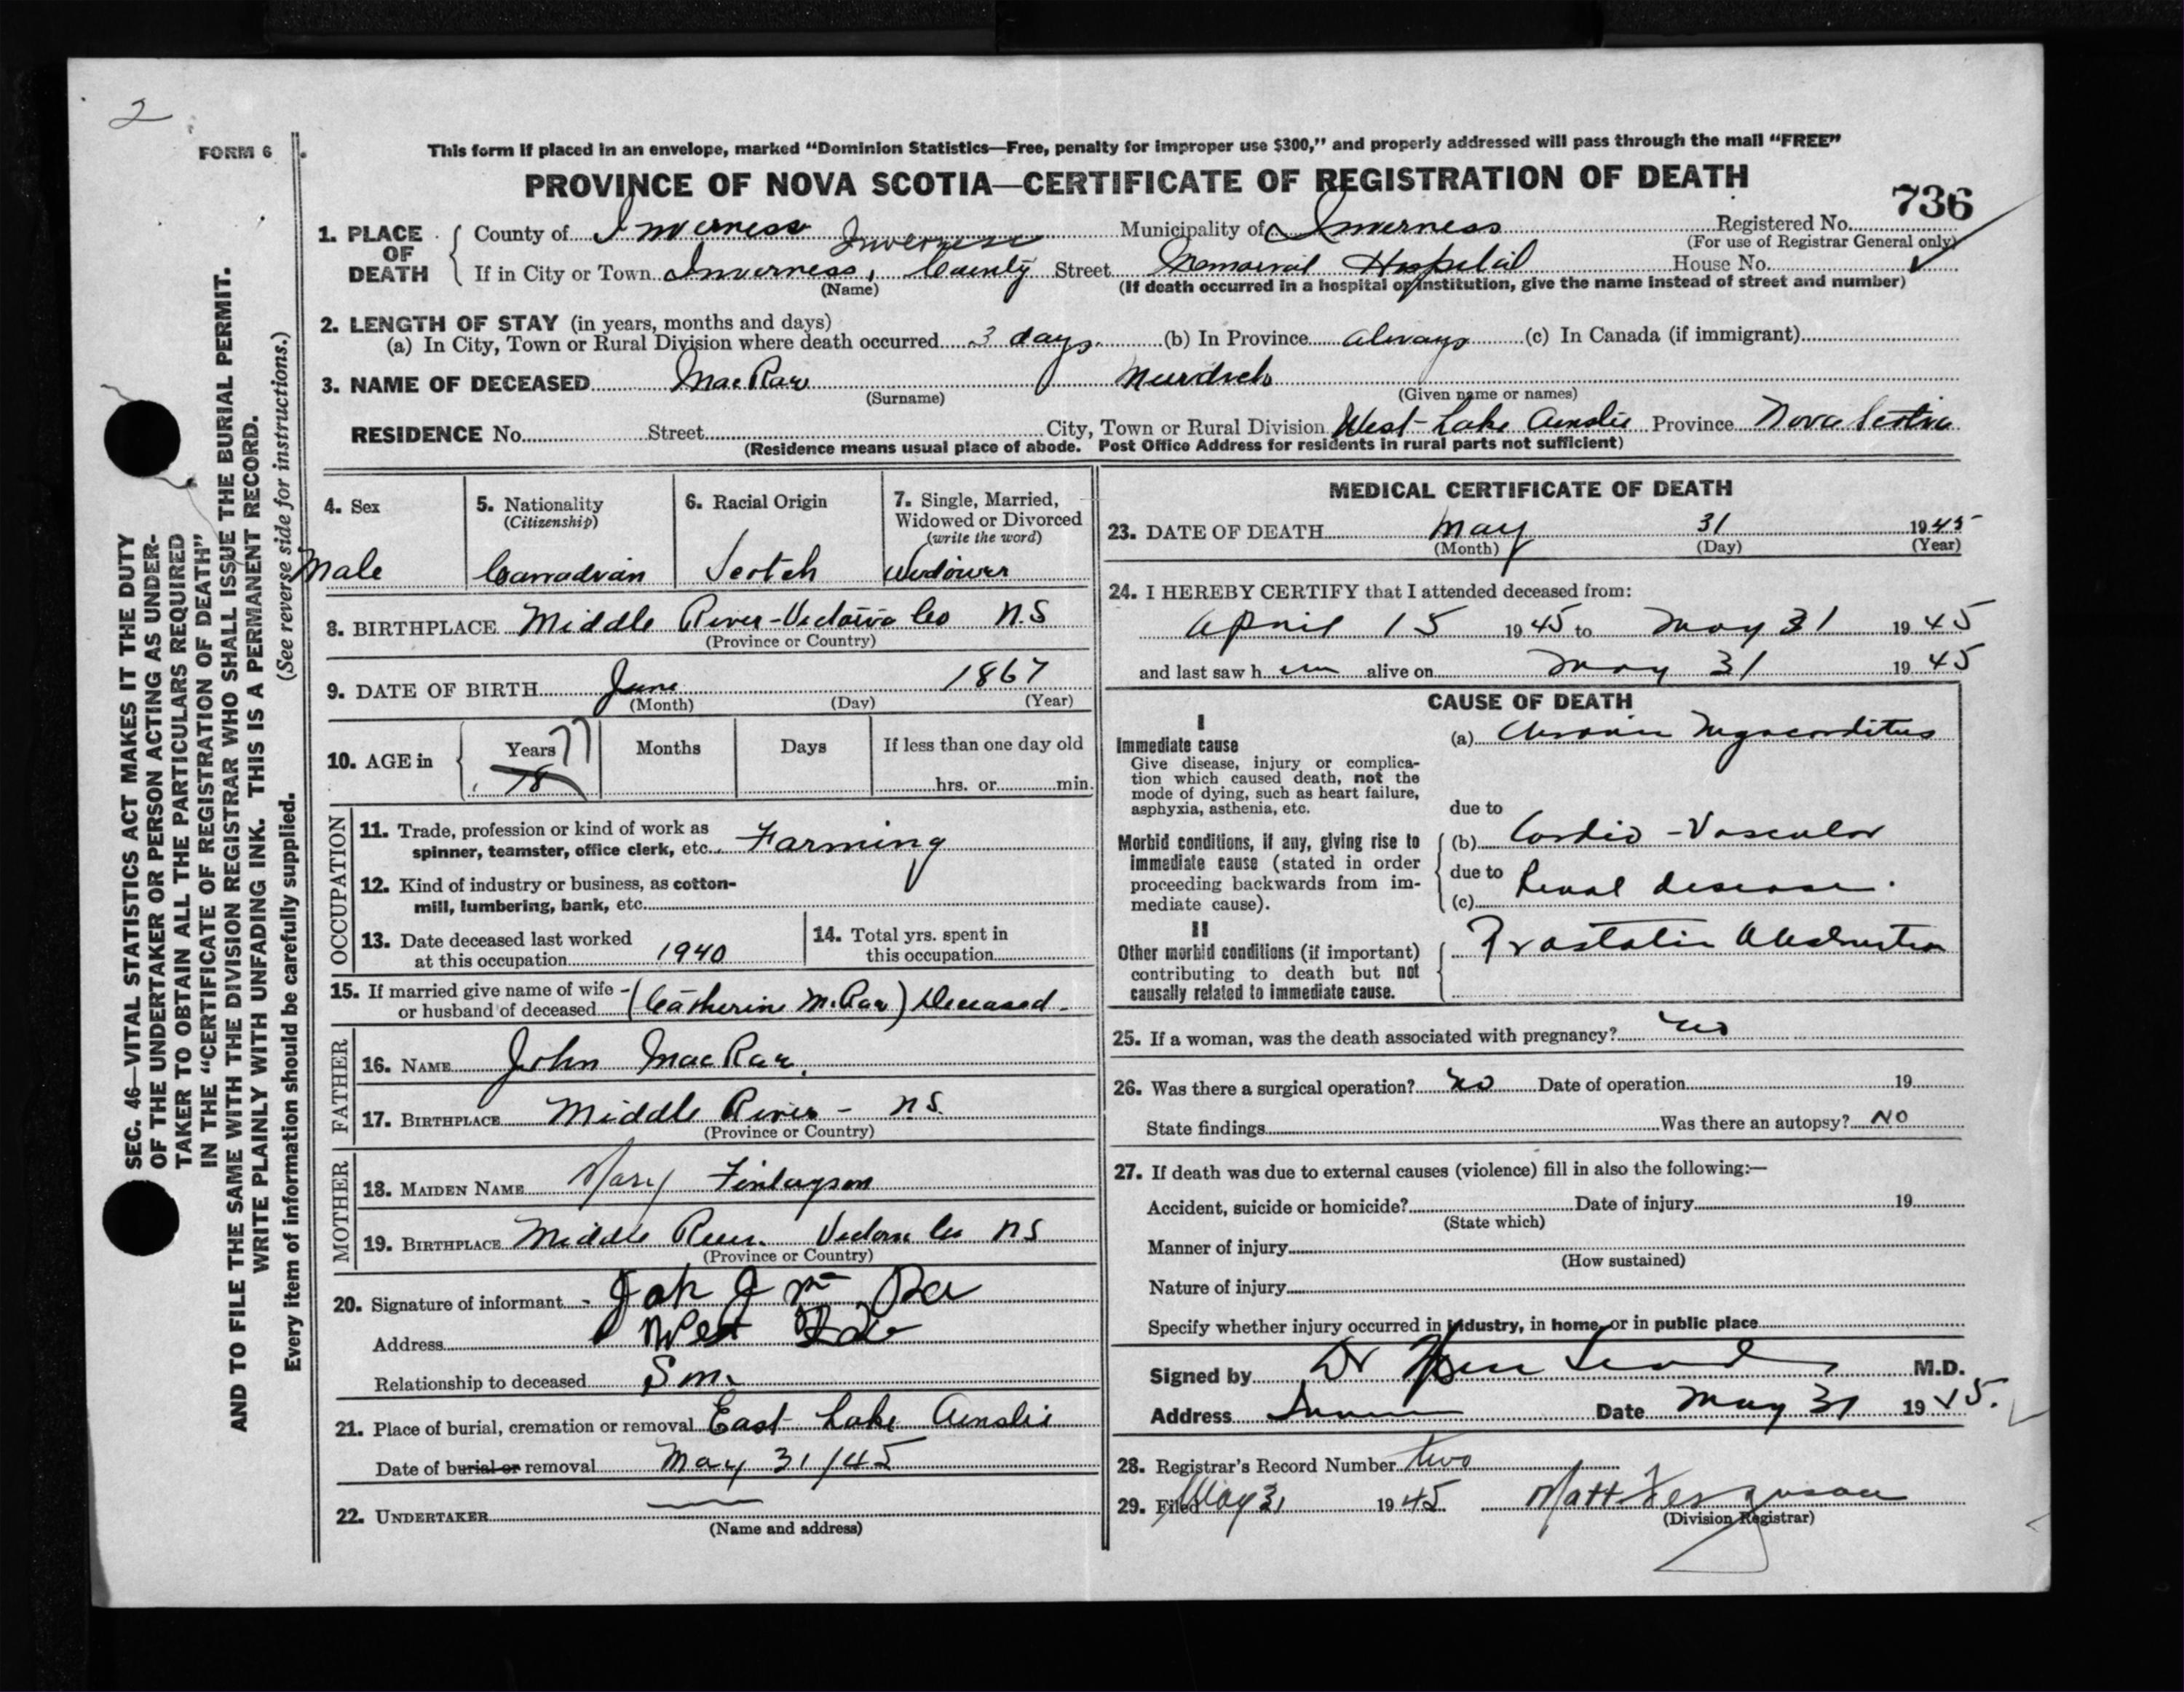 2
FORM 6
This form if placed in an envelope, marked "Dominion Statistics—Free, penalty for improper use $300," and properly addressed will pass through the mail "FREE"
PROVINCE OF NOVA SCOTIA—CERTIFICATE OF REGISTRATION OF DEATH
736
1. PLACE OF DEATH
County of Inverness Municipality of Inverness Registered No.
(For use of Registrar General only)
Inverness
If in City or Town Inverness, County Street Memorial Hospital House No.
(Name) (If death occurred in a hospital or institution, give the name instead of street and number)
2. LENGTH OF STAY (in years, months and days)
(a) In City, Town or Rural Division where death occurred 3 days. (b) In Province always (c) In Canada (if immigrant)
3. NAME OF DECEASED MacRae Murdoch
(Surname) (Given name or names)
RESIDENCE No. Street City, Town or Rural Division West-Lake Ainslie Province Nova Scotia
(Residence means usual place of abode. Post Office Address for residents in rural parts not sufficient)
4. Sex
Male
5. Nationality
(Citizenship)
Canadian
6. Racial Origin
Scotch
7. Single, Married,
Widowed or Divorced
(write the word)
Widower
8. BIRTHPLACE Middle River-Victoria Co N.S
(Province or Country)
9. DATE OF BIRTH June 1867
(Month) (Day) (Year)
10. AGE in
Years 77
78
Months
Days
If less than one day old
hrs. or min.
OCCUPATION
11. Trade, profession or kind of work as
spinner, teamster, office clerk, etc. Farming
12. Kind of industry or business, as cotton-
mill, lumbering, bank, etc.
13. Date deceased last worked
at this occupation 1940
14. Total yrs. spent in
this occupation
15. If married give name of wife
or husband of deceased (Catherine McRae) Deceased.
FATHER
16. NAME John MacRae.
17. BIRTHPLACE Middle River - N.S.
(Province or Country)
MOTHER
18. MAIDEN NAME Mary Finlayson
19. BIRTHPLACE Middle River. Victoria Co NS
(Province or Country)
20. Signature of informant J Mc Rae
Address West
Relationship to deceased Son.
21. Place of burial, cremation or removal East Lake Ainslie
Date of burial or removal May 31/45
22. UNDERTAKER
(Name and address)
MEDICAL CERTIFICATE OF DEATH
23. DATE OF DEATH May 31 1945
(Month) (Day) (Year)
24. I HEREBY CERTIFY that I attended deceased from:
April 15 1945 to May 31 1945
and last saw him alive on May 31 1945
CAUSE OF DEATH
I
Immediate cause
Give disease, injury or complica-
tion which caused death, not the
mode of dying, such as heart failure,
asphyxia, asthenia, etc.
(a) Chronic Myocarditis
due to
Morbid conditions, if any, giving rise to
immediate cause (stated in order
proceeding backwards from im-
mediate cause).
(b) Cardio-Vascular
due to
(c) Renal disease.
II
Other morbid conditions (if important)
contributing to death but not
causally related to immediate cause.
Prostatic Obstruction
25. If a woman, was the death associated with pregnancy? no
26. Was there a surgical operation? no Date of operation 19
State findings Was there an autopsy? NO
27. If death was due to external causes (violence) fill in also the following:—
Accident, suicide or homicide? Date of injury 19
(State which)
Manner of injury
(How sustained)
Nature of injury
Specify whether injury occurred in industry, in home, or in public place
Signed by Dr M.D.
Address Date May 31 1945.
28. Registrar's Record Number two
29. Filed May 31 1945 Matt Ferguson
(Division Registrar)
SEC. 46—VITAL STATISTICS ACT MAKES IT THE DUTY
OF THE UNDERTAKER OR PERSON ACTING AS UNDER-
TAKER TO OBTAIN ALL THE PARTICULARS REQUIRED
IN THE "CERTIFICATE OF REGISTRATION OF DEATH"
AND TO FILE THE SAME WITH THE DIVISION REGISTRAR WHO SHALL ISSUE THE BURIAL PERMIT.
WRITE PLAINLY WITH UNFADING INK. THIS IS A PERMANENT RECORD.
Every item of information should be carefully supplied. (See reverse side for instructions.)